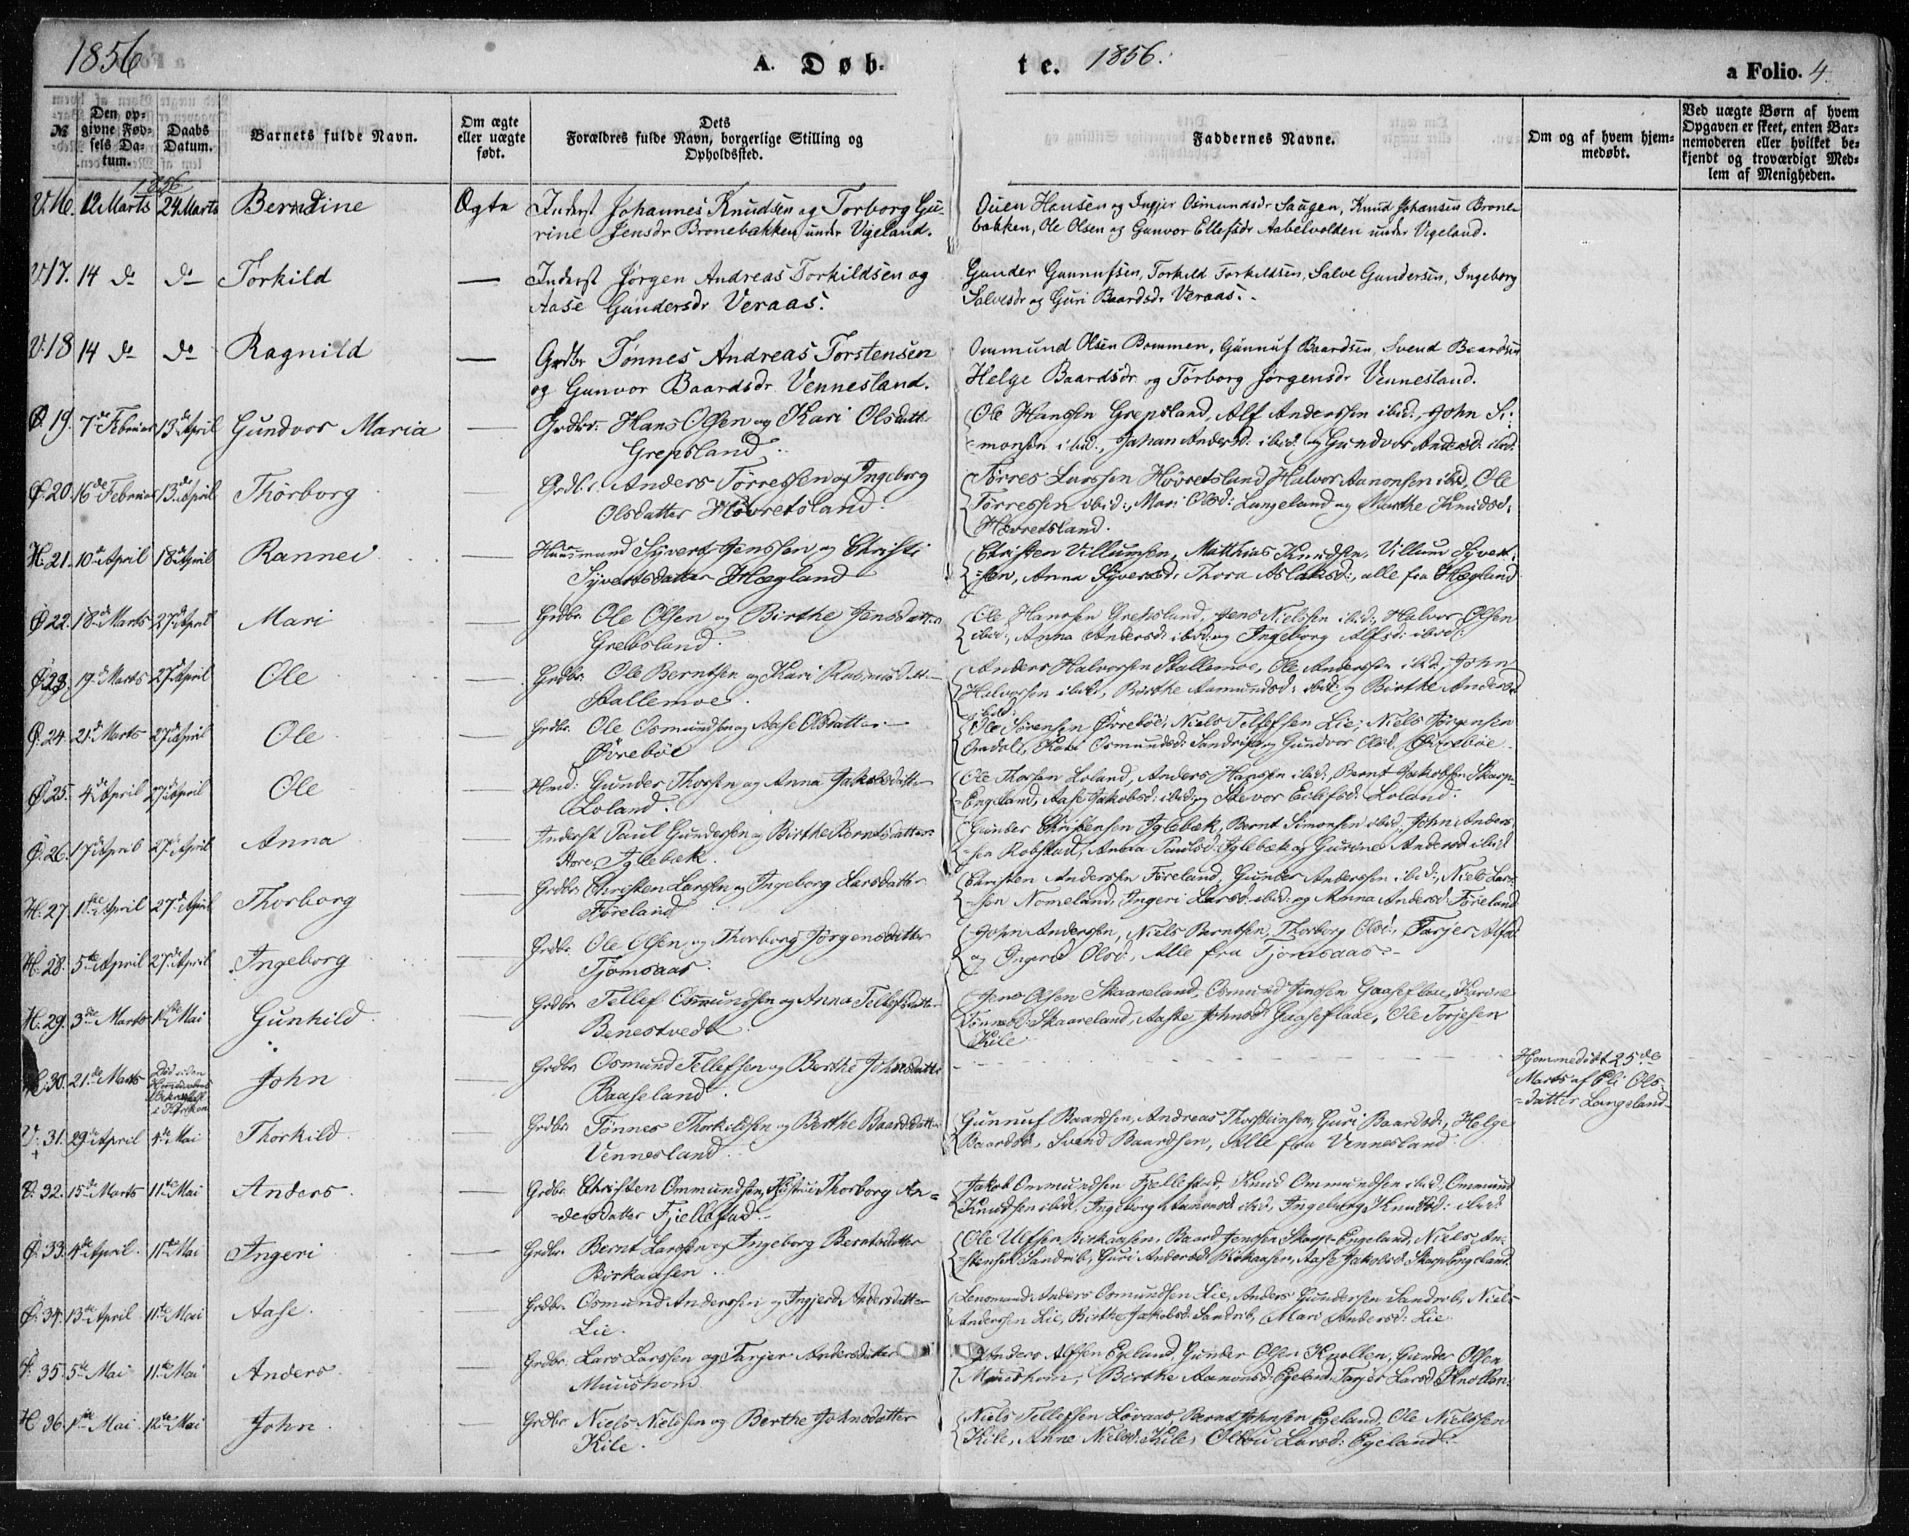 1856
A. Døb-
te.
1856.
a Folio. 4.
№
Den op-
givne Fød-
sels Da-
tum.
Daabs
Datum.
Barnets fulde Navn.
Om ægte
eller uægte
født.
Dets
Forældres fulde Navn, borgerlige Stilling og
Opholdssted.
Faddernes Navne.
Om og af hvem hjem-
medøbt.
Ved uægte Børn af hvem
Opgaven er skeet, enten Bar-
nemoderen eller hvilket be-
kjendt og troværdigt Med-
lem af Menigheden.
1856
V.16. 12 Marts 24 Marts Berndtine Ægte Inderst Johannes Knudsen og Torborg Gu-
rine Jensdr Bronebakken under Vigeland.
Ouen Hansen og Ingjer Osmundsdr Saugen, Knud Johansen Brone-
bakken, Ole Olsen og Gunvor Ellefsdr Aabelvolden under Vigeland.
V.17. 14 do do Torkild — Inderst Jørgen Andreas Torkildsen og
Aase Gundersdr Veraas.
Gunder Gunnufsen, Torkild Torkildsen, Salve Gundersen, Ingeborg
Salvesdr og Guri Baardsdr Veraas.
V.18 14 do do Ragnild — Grdbr Tønnes Andreas Torstensen
og Gunvor Baardsdr Vennesland.
Ommund Olsen Bommen, Gunnuf Baardsen, Svend Baardsen
Helge Baardsdr og Torborg Jørgensdr Vennesland.
Ø.19. 7de Februar 13de April Gundvor Maria — Grdbr. Hans Olsen og Kari Olsdatt.
Grepsland.
Ole Hanssen Grepsland, Alf Anderssen ibid., John Si-
monsen ibid., Johan Andersd: ibid. og Gundvor Andersd: ibid.
Ø.20. 16de Februar 13de April Thorborg Grdbr. Anders Tørressen og Ingeborg
Olsdatter Hövretsland.
Tørres Larssen Hövretsland Halvor Aanonsen ibid, Ole
Tørressen ibid:, Mari Olsd: Langeland og Marthe Knudsd:
Hövretsland.
H.21. 10de April 18de April Rannei — Huusmand Syvert Jenssen og Christi
Syvertsdatter Hægland
Christen Villumsen, Matthias Knudsen, Villum Syvert-
sen, Anna Syversd: Thora Aslaksd:, alle fra Hægland
Ø.22. 18de Marts 27de April Mari — Grdbr. Ole Olsen og Birthe Jensdatter
Grebsland.
Ole Hanssen Grepsland, Jens Nielssen ibid:, Halvor Olsen
ibid:, Anna Andersd: ibid: og Ingeborg Alfsd: ibid:
Ø.23. 19de Marts 27de April Ole — Grdbr. Ole Berntsen og Kari Rasmusdatt.
Stallemoe.
Anders Halvorsen Stallemoe, Ole Anderssen ibid:, John
Halvorsen ibid., Birthe Aamundsd: ibid: og Birthe Andersd
ibid:
Ø.24. 21de Marts 27de April Ole — Grdbr. Ole Osmundsen og Aase Olsdatter
Ørebøe
Ole Sørensen Ørebøe, Niels Tellefsen Lie, Niels Jørgensen
Omdal, Kari Osmundsd: Sandrib og Gundvor Olsd. Ørebøe.
Ø.25. 4de April 27de April Ole — Hmd: Gunder Thorsen og Anna Jakobsdatter
Loland.
Ole Thorsen Loland, Anders Hanssen ibid, Bernt Jakobsen Skarp-
Engeland, Aase Jakobsd: ibid: og Stevor Eilefsd. Loland.
Ø.26. 17de April 27de April Anna — Inderst Paul Gundersen og Birthe Berntsdatter
Store Iglebæk.
Gunder Christensen Iglebæk, Bernt Simonsen ibid, John Anders-
sen Robstad, Anna Paulsd: Iglebæk og Gurine Andersd ibid
H.27. 1ste April 27de April Thorborg — Grdbr. Christen Larssen og Ingeborg Larsdatter
Föreland
Christen Anderssen Föreland, Gunder Anderssen ibid., Niels Lars-
sen Nomeland, Ingeri Larsd: ibid: og Anna Andersd: Föreland
H.28. 5te April 27de April Ingeborg Grdbr. Ole Olsen og Thorborg Jørgensdatter
Tjomsaas.
John Anderssen, Niels Berntsen, Thorborg Olsd:, Tarjer Alfsd
og Ingerid Olsd:, Alle fra Tjomsaas.
H.29. 3die Marts 1ste Mai Gunhild — Grdbr. Tellef Osmundsen og Anna Tellefsdatter
Benestvedt
Jens Olsen Skaareland, Osmund Jenssen Gaaseflaae, Karine
Tønnesd: Skaareland, Aaste Johnsd: Gaaseflaae, Ole Torjesen
Kile
H.30. 21de Marts Död uden
Daabens
Bekræftelse
i Kirken John — Grdbr. Osmund Tellefsen og Berthe Johnsdatter
Baaseland.
Hjemmedöbt 25de
Marts af Eli Ols-
datter Langeland
V.31. 29de April 4de Mai Thorkild — Grdbr. Tönnes Thorkildsen og Berthe Baardsdatter
Vennesland
Gunnuf Baardsen, Andreas Thorsteinsen, Guri Baardsd:, Helge
Baardsd, Svend Baardsen, Alle fra Vennesland
V.32. 15de Marts 11te Mai Anders — Grdbr. Christen Ommundsen, Hustru Thorborg An-
dersdatter Fjellestad
Jakob Ommundsen Fjellestad, Knud Ommundsen ibid., Ommund
Knudsen ibid, Ingeborg Aanonsd ibid, Ingeborg Knudsd: ibid:
Ø.33. 4de April. 11te Mai Ingeri — Grdbr. Bernt Larssen og Ingeborg Berntsdatter
Birkaasen.
Ole Ulfsen Birkaasen, Baard Jenssen Skarp-Engeland, Niels An-
stensen Sandrib, Guri Andersd: Birkaasen, Aase Jakobsd: Skarp Engeland.
Ø.34. 13de April 11te Mai Aase. — Grdbr. Osmund Anderssen og Ingjerd Andersdatter
Lie.
Lensmand Anders Osmundsen Lie, Anders Gundersen Sandrib, Niels
Anderssen Lie, Birthe Jakobsd: Sandrib, Mari Andersd: Lie
35. 5te Mai 11te Mai Anders — Grdbr. Lars Larssen og Tarjer Andersdatter
Muushom.
Anders Alfsen Egeland, Gunder Olsen Knollen, Gunder Olsen
Muushom, Birthe Aanonsd: Egeland, Tarjer Larsd: Knollen.
H.36. 1ste Mai 12te Mai John. — Grdbr. Niels Nielssen og Berthe Johnsdatter
Kile.
Niels Tellefsen Løvaas, Bernt Johnsen Egeland, Ole Nielssen
Kile, Anne Nielsd: Kile, Larsd: Egeland.